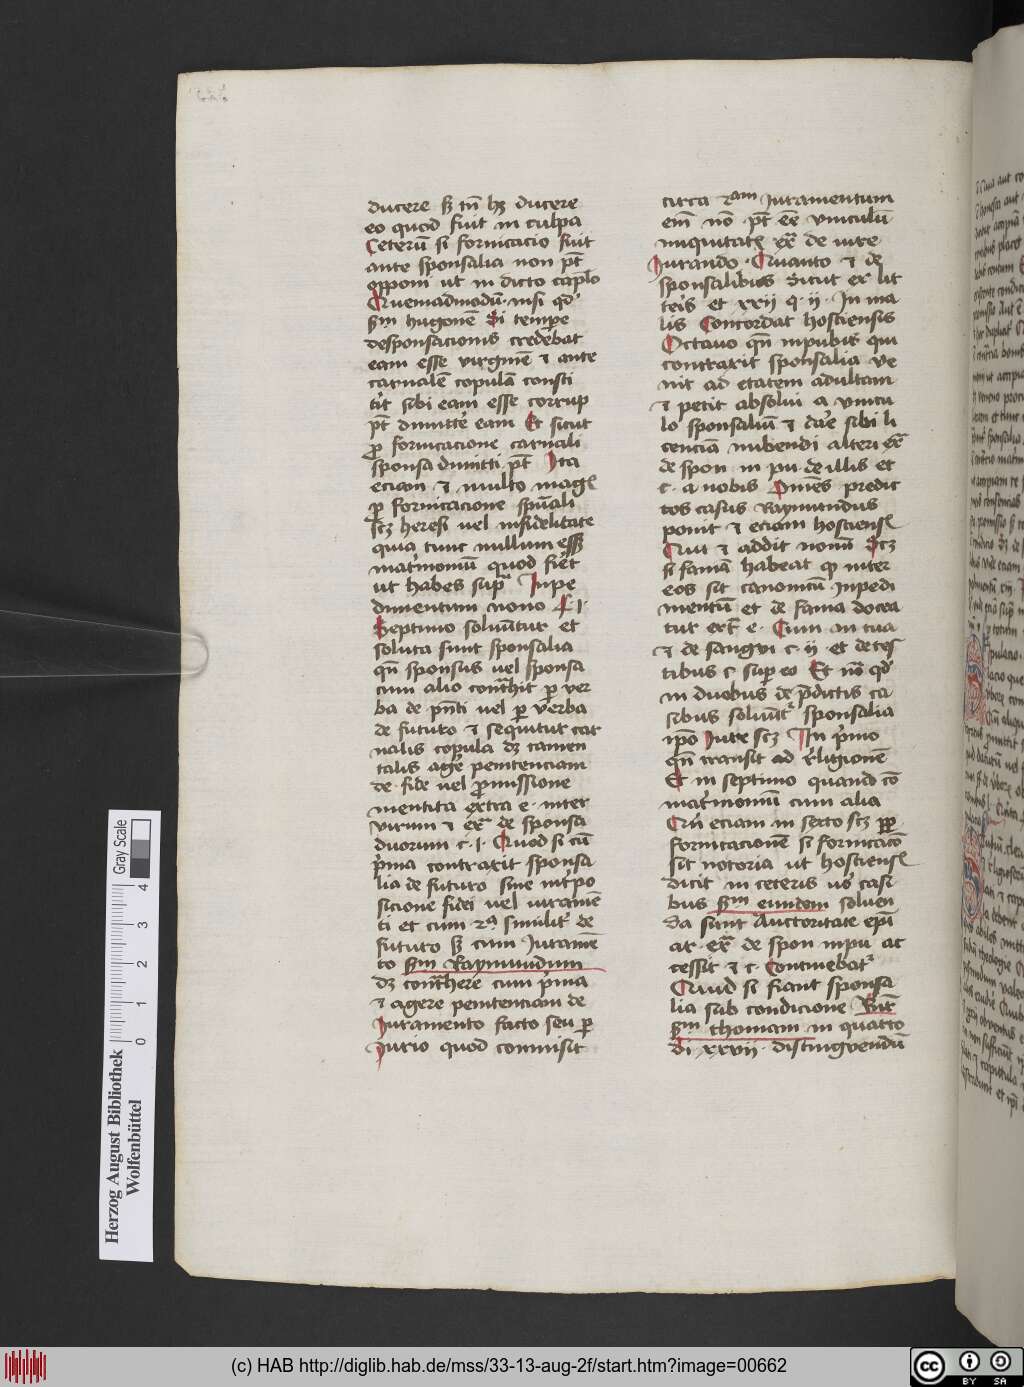 ducere sz tn̄ hz ducere
eo quod fuit in culpa
Ceterū si fornicacio fuit
ante sponsalia non pt̄
opponi ut in dicto capl̄o
Quemadmodū nisi qd̓
scd̓m hugonē Si tempe
desponsacionis credebat
eam esse virginē ⁊ ante
carnalē copulā consti
tit sibi eam esse corrup
pt̄ dimitte᷑ eam Et sicut
ꝓ fornicacione carnali
sponsa dimitti pt̄ Ita
eciam ⁊ multo mag̓
ꝓ fornicacione spūali
scz heresi uel infidelitate
quia tunc nullum ess̄
mat̓moniū quod fiet
ut habes sup̓ Inpe
dimentum nono § i·
Septimo soluūtur et
soluta sunt sponsalia
qn̄ sponsus uel sponsa
cum alio cont̓hit ꝑ ver
ba de pn̄ti uel ꝑ verba
de futuro ⁊ sequitur car
nalis copula dz tamen
talis age᷑ penitenciam
de fide uel ꝓmissione
mentita extra e· inter
virum ⁊ ex̄ de sponsa
duorum c· i· Quod si cū
p̓ma contraxit sponsa
lia de futuro sine int̓po
sicione fidei uel iuramē
ti et cum 2ᵃ similit̓ de
futuro sz cum Juramē
to scd̓m Raymundum
dz cont̓here cum p̓ma
⁊ agere penitenciam de
Juramento facto seu ꝑ
Jurio quod commisit
circa 2am Juramentum
eni̅ nō pt̄ eē vinculū
iniquitat̓ ex̄ de iure
Jurando· Quanto ⁊ de
sponsalibus Sicut ex lit
teis et xxij q· ij· In ma
lis Concordat hostiensis
Octauo qn̄ inpub̓ qui
contraxit sponsalia ve
nit ad etatem adultam
⁊ petit absolui a vincu
lo sponsaliū ⁊ da᷑e sibi li
cenciā nubendi alteri ex̄
de spon in pu· de illis et
c· a nobis Omēs predic
tos casus Raymundus
ponit ⁊ eciam hostiens̓
Qui ⁊ addit nonū Scz
si famā habeat ꝙ inter
eos sit canonicū Inpedi
mentū et de fama docea
tur extͣ e· Cum in tua
⁊ de sangwi c· ij· et de tes
tibus c· sup eo Et nō qd̓
in duobus de p̄dictis ca
sibus soluūt̓ sponsalia
ipō Jure scz In p̓mo
qn̄ transit ad religionē
Et in septimo quando cō
mat̓moniū cum alia
Crn̄ eciam in sexto scz ꝓpt̓
fornicacionē si fornicacō
sit notoria ut hostiens̓
dicit in ceteris vo̓ casi
bus scd̓m eundem soluen
da sunt Auctoritate epī
ac· ex̄ de spon inpu ac
cessit ⁊ c· Continebat̓
Quid si fiant sponsa
lia sub condicione Rn̄t̄
scd̓m thomam in quarto
di xxvij· distingvendū
Herzog August Bibliothek
Wolfenbüttel
Gray Scale
0 1 2 3 4
(c) HAB http://diglib.hab.de/mss/33-13-aug-2f/start.htm?image=00662
cc BY SA